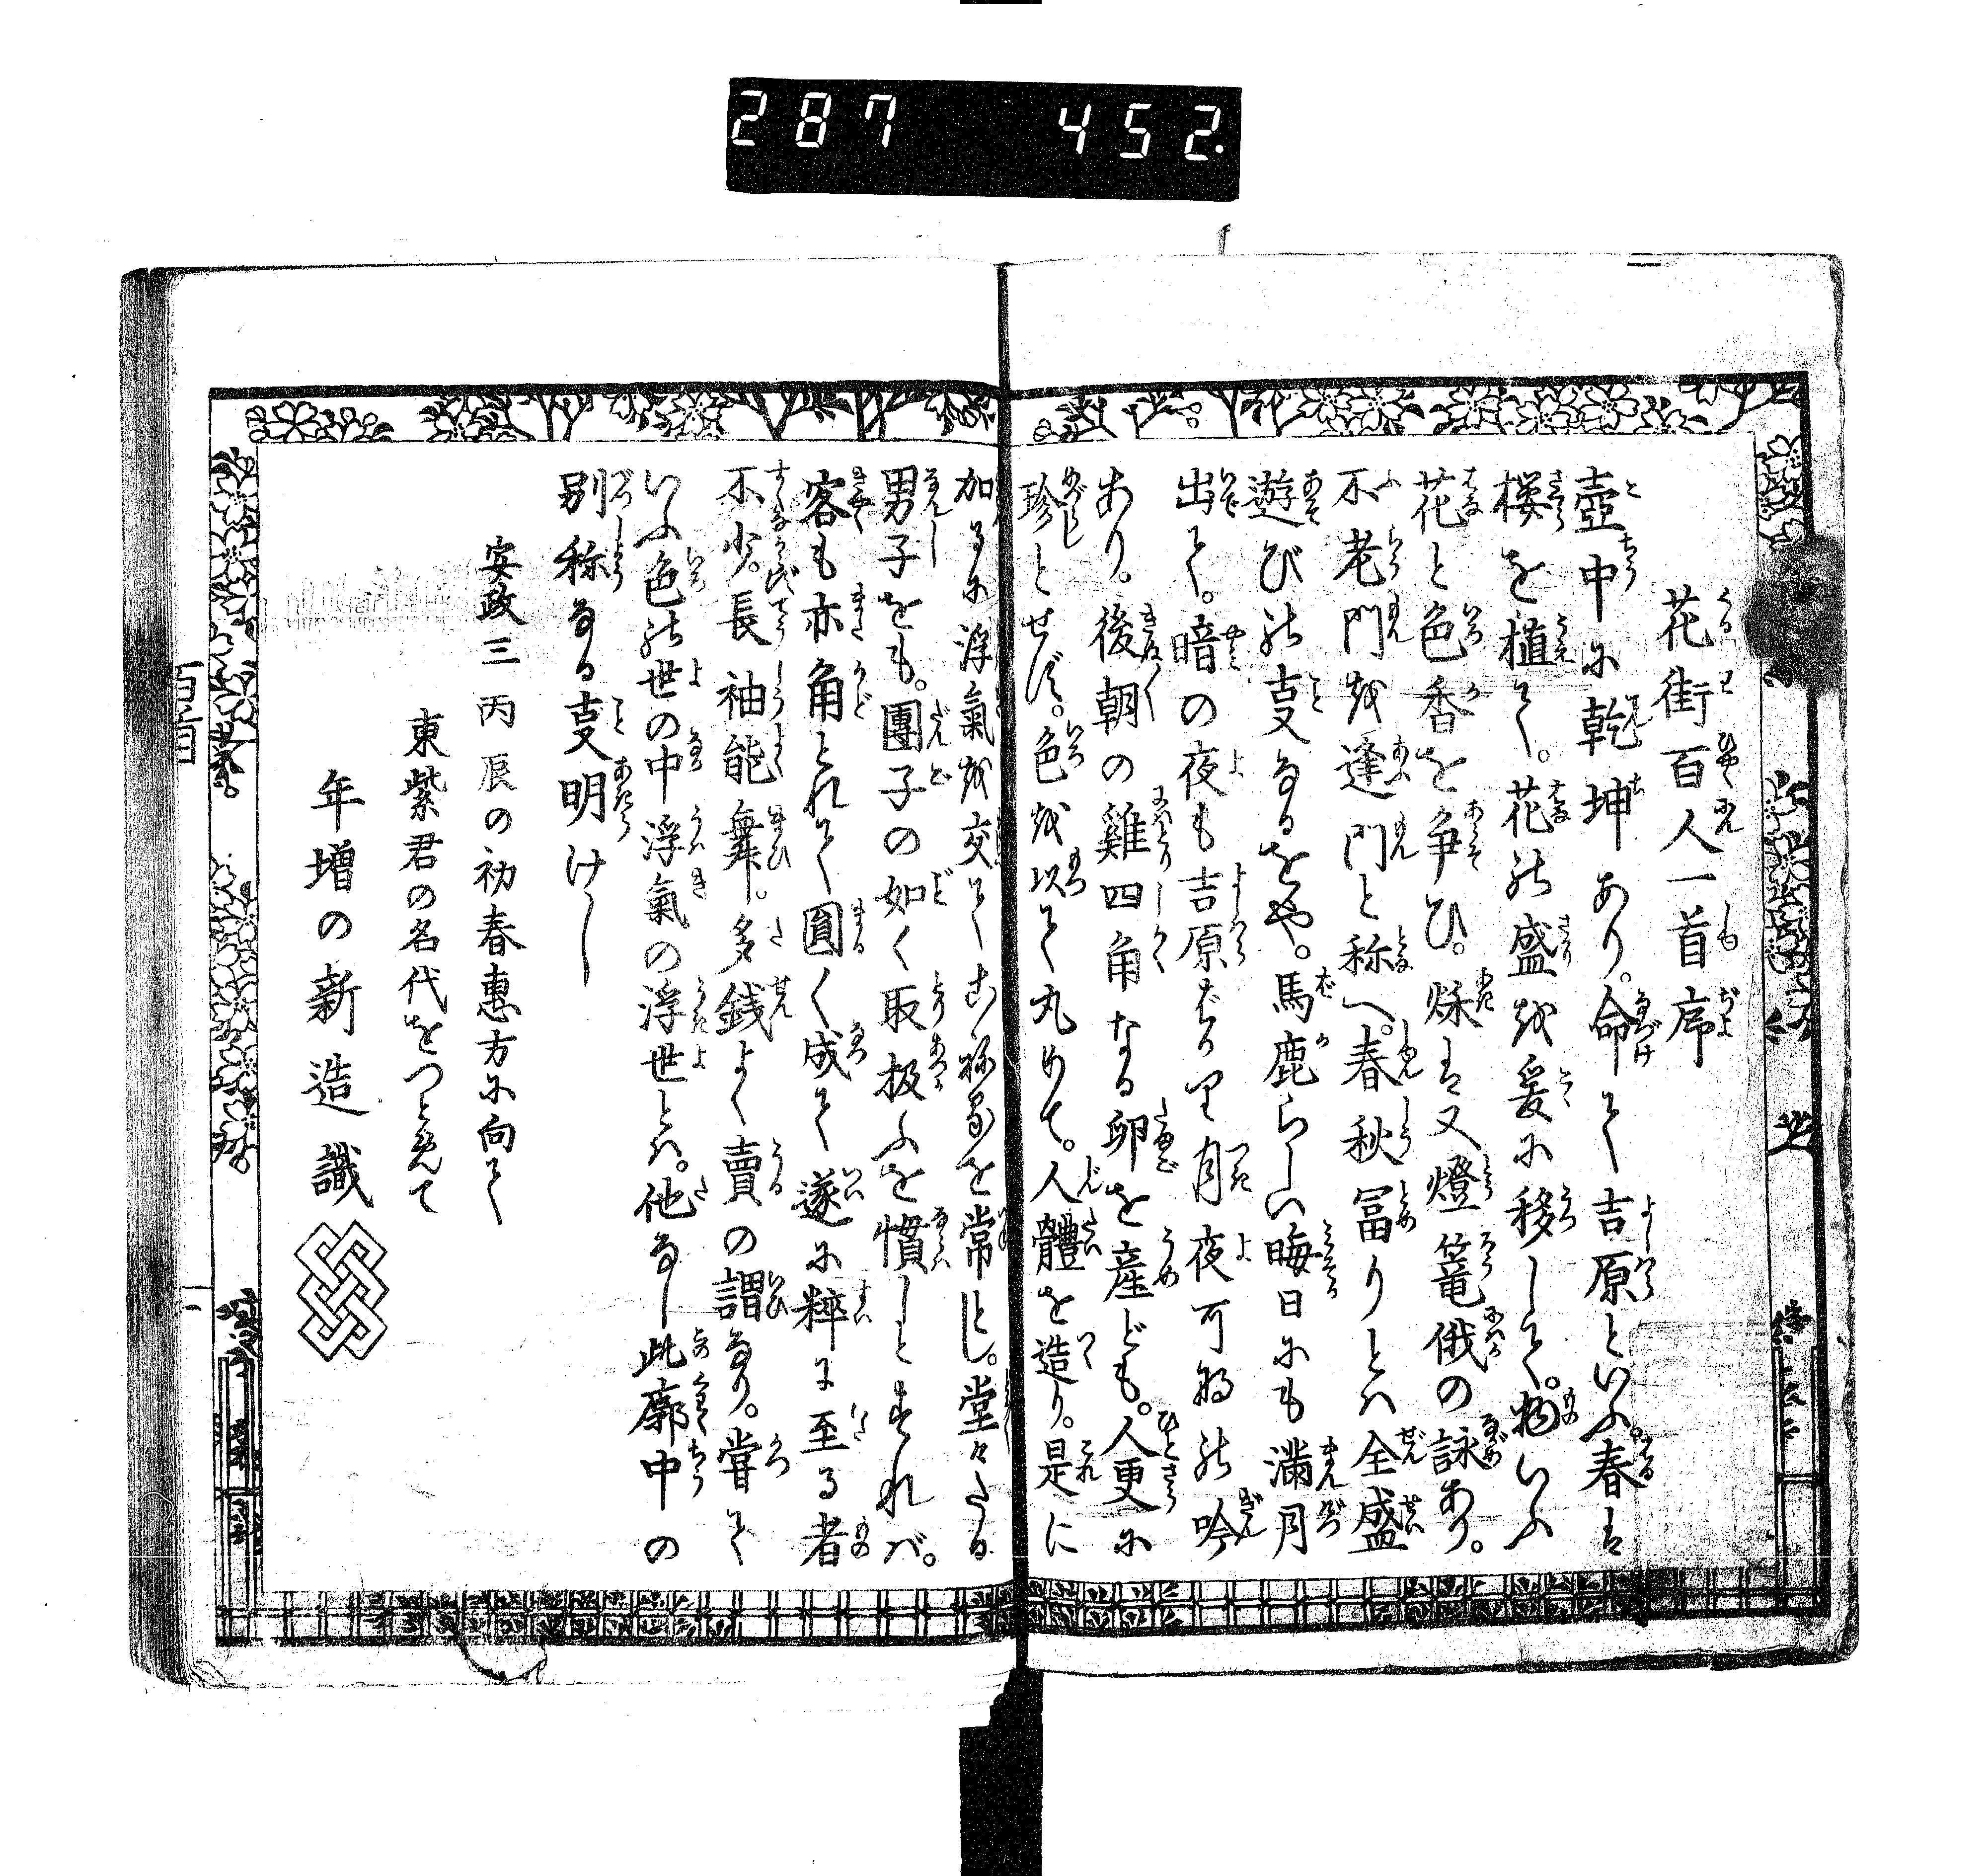 287 452.
花街百人一首序
壺中に乾坤あり。命て吉原といふ。春は
桜を植て。花の盛を爰に移して。物いふ
花と色香を争ひ。秌は又燈篭俄の詠あり。
不老門を逢門と称へ。春秋冨りとハ全盛
遊びの事なるをや。馬鹿らしい晦日にも満月
出て。暗の夜も吉原ばかり月夜可那の吟
あり。後朝の雞四角なる卵を産ども。人更に
珍とせず。色を以て丸めて。人體を造り。是に
加るに浮氣を交てこねるを常とし。堂々たる
男子をも。團子の如く取扱ふを慣しとすれバ。
客も亦角とれて圓く成て遂に粹に至る者
不少。長袖能舞。多銭よく賣の謂なり。嘗て
いふ色の世の中浮氣の浮世とハ。他なし此廓中の
別称なる事明けし
安政三丙辰の初春惠方に向て
東紫君の名代をつとめて
年増の新造識
百首
一